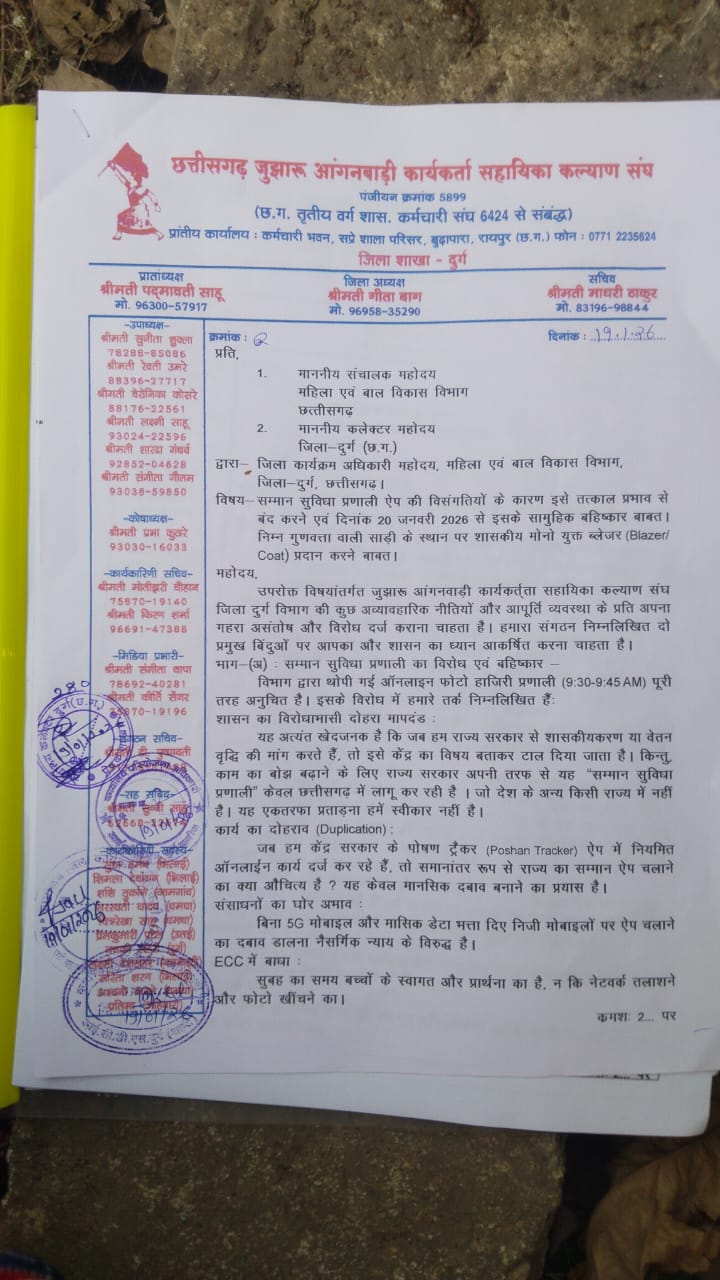 छत्तीसगढ़ जुझारू आंगनबाड़ी कार्यकर्ता सहायिका कल्याण संघ
पंजीयन क्रमांक 5899
(छ.ग. तृतीय वर्ग शास. कर्मचारी संघ 6424 से संबंद्ध)
प्रांतीय कार्यालय : कर्मचारी भवन, सप्रे शाला परिसर, बुढ़ापारा, रायपुर (छ.ग.) फोन : 0771 2235624
जिला शाखा - दुर्ग
प्रातांध्यक्ष
श्रीमती पद्मावती साहू
मो. 96300-57917
जिला अध्यक्ष
श्रीमती गीता बाग
मो. 96958-35290
सचिव
श्रीमती माधरी ठाकुर
मो. 83196-98844
-उपाध्यक्ष-
श्रीमती सुनीता शुक्ला
78288-85086
श्रीमती रेवती उमरे
88396-27717
श्रीमती वेरोनिका कोसरे
88176-22561
श्रीमती लक्ष्मी साहू
93024-22596
श्रीमती शारदा गंधर्व
92852-04628
श्रीमती संगीता गौतम
93038-59850
-कोषाध्यक्ष-
श्रीमती प्रभा कुखरे
93030-16033
-कार्यकारिणी सचिव-
श्रीमती मोतीझरी चौहान
75870-19140
श्रीमती किरण शर्मा
96691-47388
-मिडिया प्रभारी-
श्रीमती संगीता थापा
78692-40281
श्रीमती कीर्ति सैगर
70-19196
संगठन सचिव-
श्रीमती डी.
-सह सचिव-
क्रमांक : 2
दिनांक : 19.1.26
प्रति,
1. माननीय संचालक महोदय
महिला एवं बाल विकास विभाग
छत्तीसगढ़
2. माननीय कलेक्टर महोदय
जिला–दुर्ग (छ.ग.)
द्वारा– जिला कार्यक्रम अधिकारी महोदय, महिला एवं बाल विकास विभाग,
जिला–दुर्ग, छत्तीसगढ़।
विषय– सम्मान सुविधा प्रणाली ऐप की विसंगतियों के कारण इसे तत्काल प्रभाव से
बंद करने एवं दिनांक 20 जनवरी 2026 से इसके सामुहिक बहिष्कार बाबत।
निम्न गुणवत्ता वाली साड़ी के स्थान पर शासकीय मोनो युक्त ब्लेजर (Blazer/
Coat) प्रदान करने बाबत।
महोदय,
उपरोक्त विषयांतर्गत जुझारू आंगनबाड़ी कार्यकर्त्ता सहायिका कल्याण संघ
जिला दुर्ग विभाग की कुछ अव्यावहारिक नीतियों और आपूर्ति व्यवस्था के प्रति अपना
गहरा असंतोष और विरोध दर्ज कराना चाहता है। हमारा संगठन निम्नलिखित दो
प्रमुख बिंदुओं पर आपका और शासन का ध्यान आकर्षित करना चाहता है।
भाग–(अ) : सम्मान सुविधा प्रणाली का विरोध एवं बहिष्कार –
विभाग द्वारा थोपी गई ऑनलाइन फोटो हाजिरी प्रणाली (9:30-9:45 AM) पूरी
तरह अनुचित है। इसके विरोध में हमारे तर्क निम्नलिखित हैं:
शासन का विरोधाभासी दोहरा मापदंड :
यह अत्यंत खेदजनक है कि जब हम राज्य सरकार से शासकीयकरण या वेतन
वृद्धि की मांग करते हैं, तो इसे केंद्र का विषय बताकर टाल दिया जाता है। किन्तु,
काम का बोझ बढ़ाने के लिए राज्य सरकार अपनी तरफ से यह "सम्मान सुविधा
प्रणाली" केवल छत्तीसगढ़ में लागू कर रही है। जो देश के अन्य किसी राज्य में नहीं
है। यह एकतरफा प्रताड़ना हमें स्वीकार नहीं है।
कार्य का दोहराव (Duplication) :
जब हम केंद्र सरकार के पोषण ट्रैकर (Poshan Tracker) ऐप में नियमित
ऑनलाईन कार्य दर्ज कर रहे हैं, तो समानांतर रूप से राज्य का सम्मान ऐप चलाने
का क्या औचित्य है ? यह केवल मानसिक दबाव बनाने का प्रयास है।
संसाधनों का घोर अभाव :
बिना 5G मोबाइल और मासिक डेटा भत्ता दिए निजी मोबाइलों पर ऐप चलाने
का दबाव डालना नैसर्गिक न्याय के विरुद्ध है।
ECC में बाधा :
सुबह का समय बच्चों के स्वागत और प्रार्थना का है, न कि नेटवर्क तलाशने
और फोटो खींचने का।
कमशः 2... पर